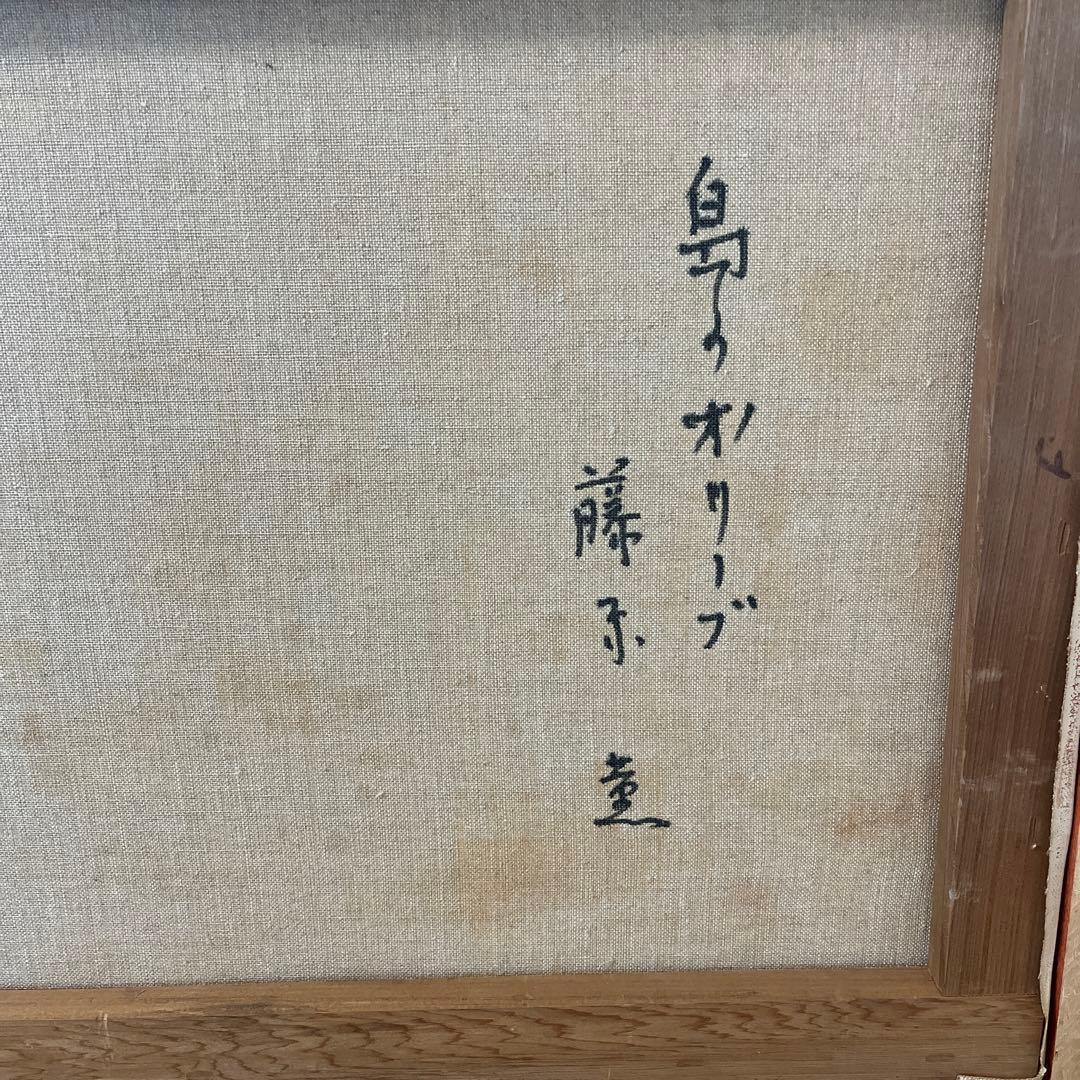 島のオリーブ
藤原薫